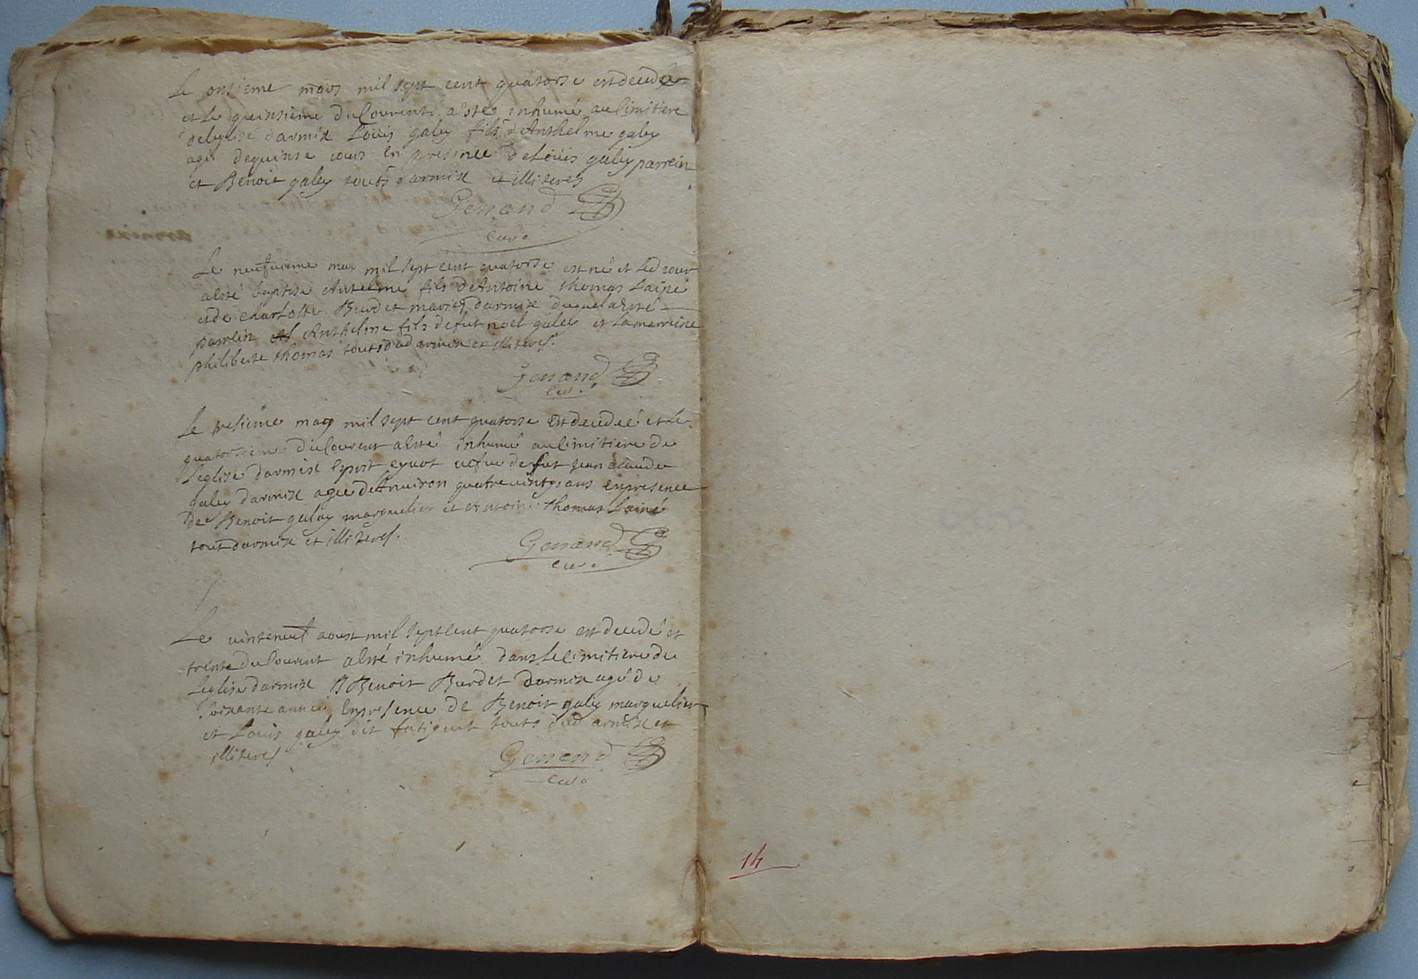 Le onsieme mars mil sept cent quatorse est decede
et le quinsieme du Courent a este inhumé au Cimitiere
de leglise darmix Louis galey fils d'Anthelme galey
agé de quinse iours en presence de Loüis galey parrein
et Benoit galey touts darmix et illiteres
Genand
Curé
Le neufvieme may mil sept cent quatorse est né et led iour
a esté baptise Antelme fils d'Antoine thomas Lainé
et de charlotte Burdet mariés darmix duquel a esté
parrein Anthelme fils de fut noel galey et la marreine
philiberte thomas touts dud armix et illiteres.
Genand
Curé
Le tresieme may mil sept cent quatorse est decedeé et le
quatorsieme du Courent a esté inhumé au Cimitiere de
Leglise darmix eynot vefve de fut jean claude
galey darmix ageé d'Environ quatre vingts ans en presence
de Benoit galey marguelier et Antoine thomas Lainé
touts darmix et illiteres.
Genand
Curé
Le vinteneuf aoust mil sept cent quatorse est decedé et
trente du Courent a esté inhumé dans le cimitiere de
Leglise darmix Benoit Burdet darmix agé de
soixante anneés En presence de Benoit galey marguelier
et Louis galey dit fatiguet touts dud armix et
illiteres
Genand
Curé
14